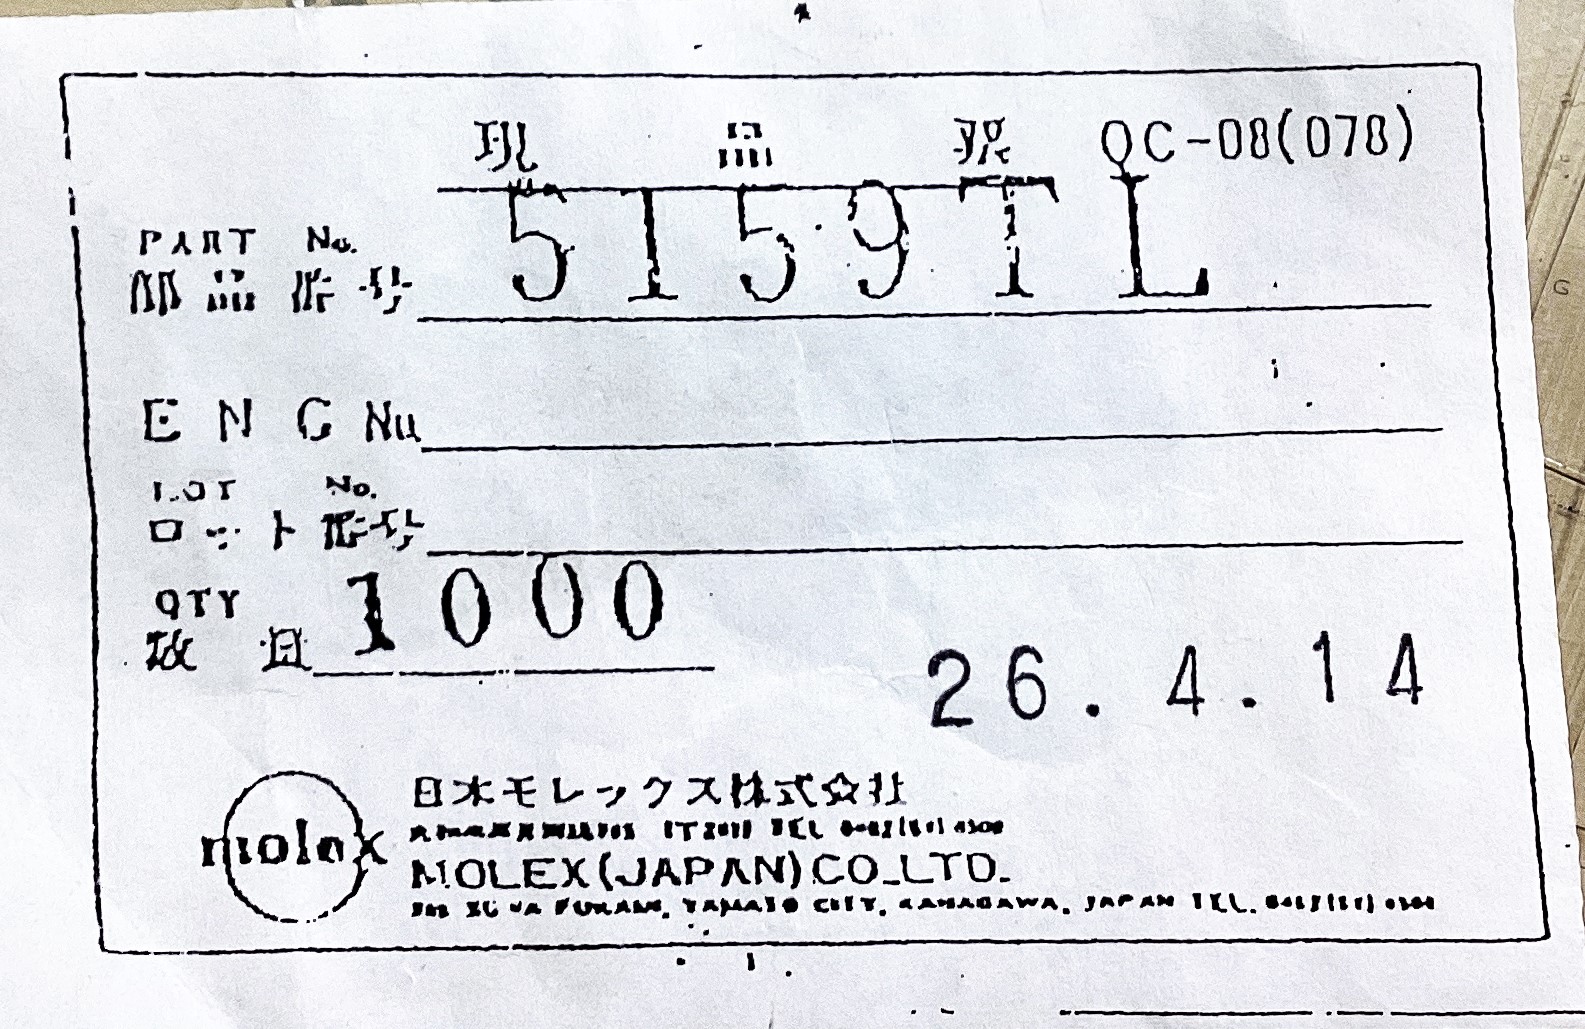 現品票 QC-08(078)
PART No. 5159TL
部品番号
ENG No.
LOT No.
ロット番号
QTY 1000
数量
26.4.14
molex
日本モレックス株式会社
MOLEX (JAPAN) CO.LTD.
YAMATO CITY, KANAGAWA, JAPAN TEL.